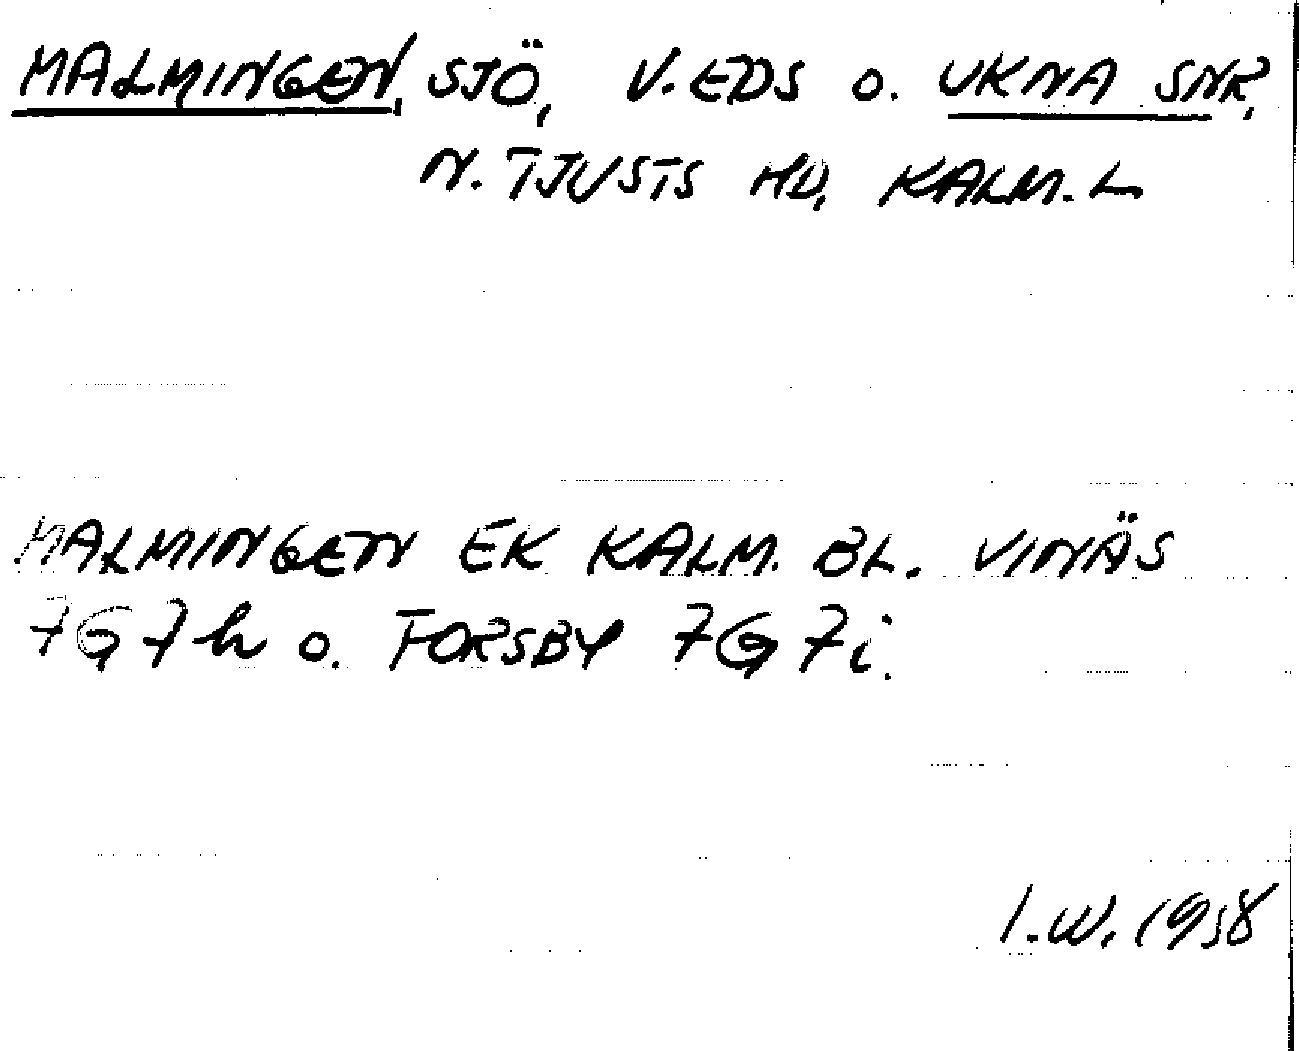 MALMINGEN, SJÖ, V. EDS O. UKNA SNR,
N. TJUSTS HD, KALM. L
MALMINGEN EK KALM. BL. VINÄS
7G7h O. FORSBY 7G7i.
I.W. 1958